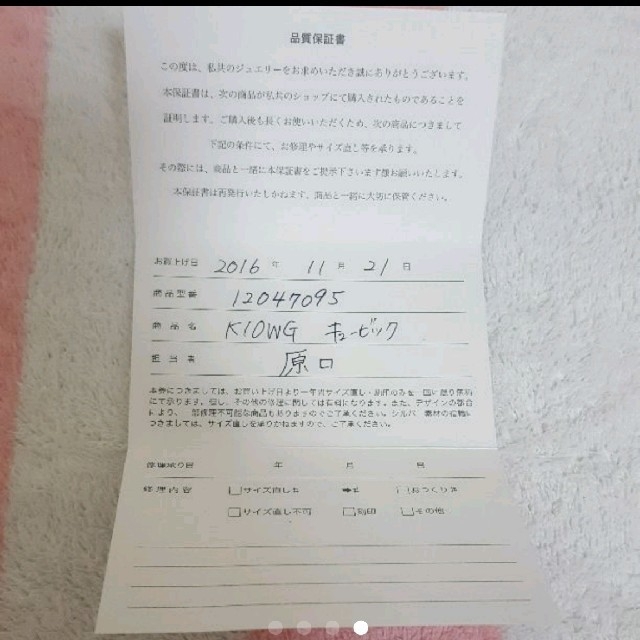 品質保証書
この度は、私共のジュエリーをお求めいただき誠にありがとうございます。
本保証書は、次の商品が私共のショップにて購入されたものであることを
証明します。ご購入後も長くお使いいただくため、次の商品につきまして
下記の条件にて、お修理やサイズ直し等を承ります。
その際には、商品と一緒に本保証書をご提示下さいます様お願いいたします。
本保証書は再発行いたしかねます。商品と一緒に大切に保管ください。
お買上げ日 2016 年 11 月 21 日
商品型番 12047095
商品名 K10WG キュービック
担当者 原口
本券につきましては、お買い上げ日より一年内サイズ直し・刻印のみを一回に限り無料
にて承ります。但し、その他の修理に関しては有料になります。また、デザインの都合
により、一部修理不可能な商品もありますのでご了承ください。シルバー素材の指輪に
つきましては、サイズ直しを承りかねますので、ご了承ください。
修理承り日 年 月 日
修理内容 サイズ直し
サイズ直し不可 刻印 その他